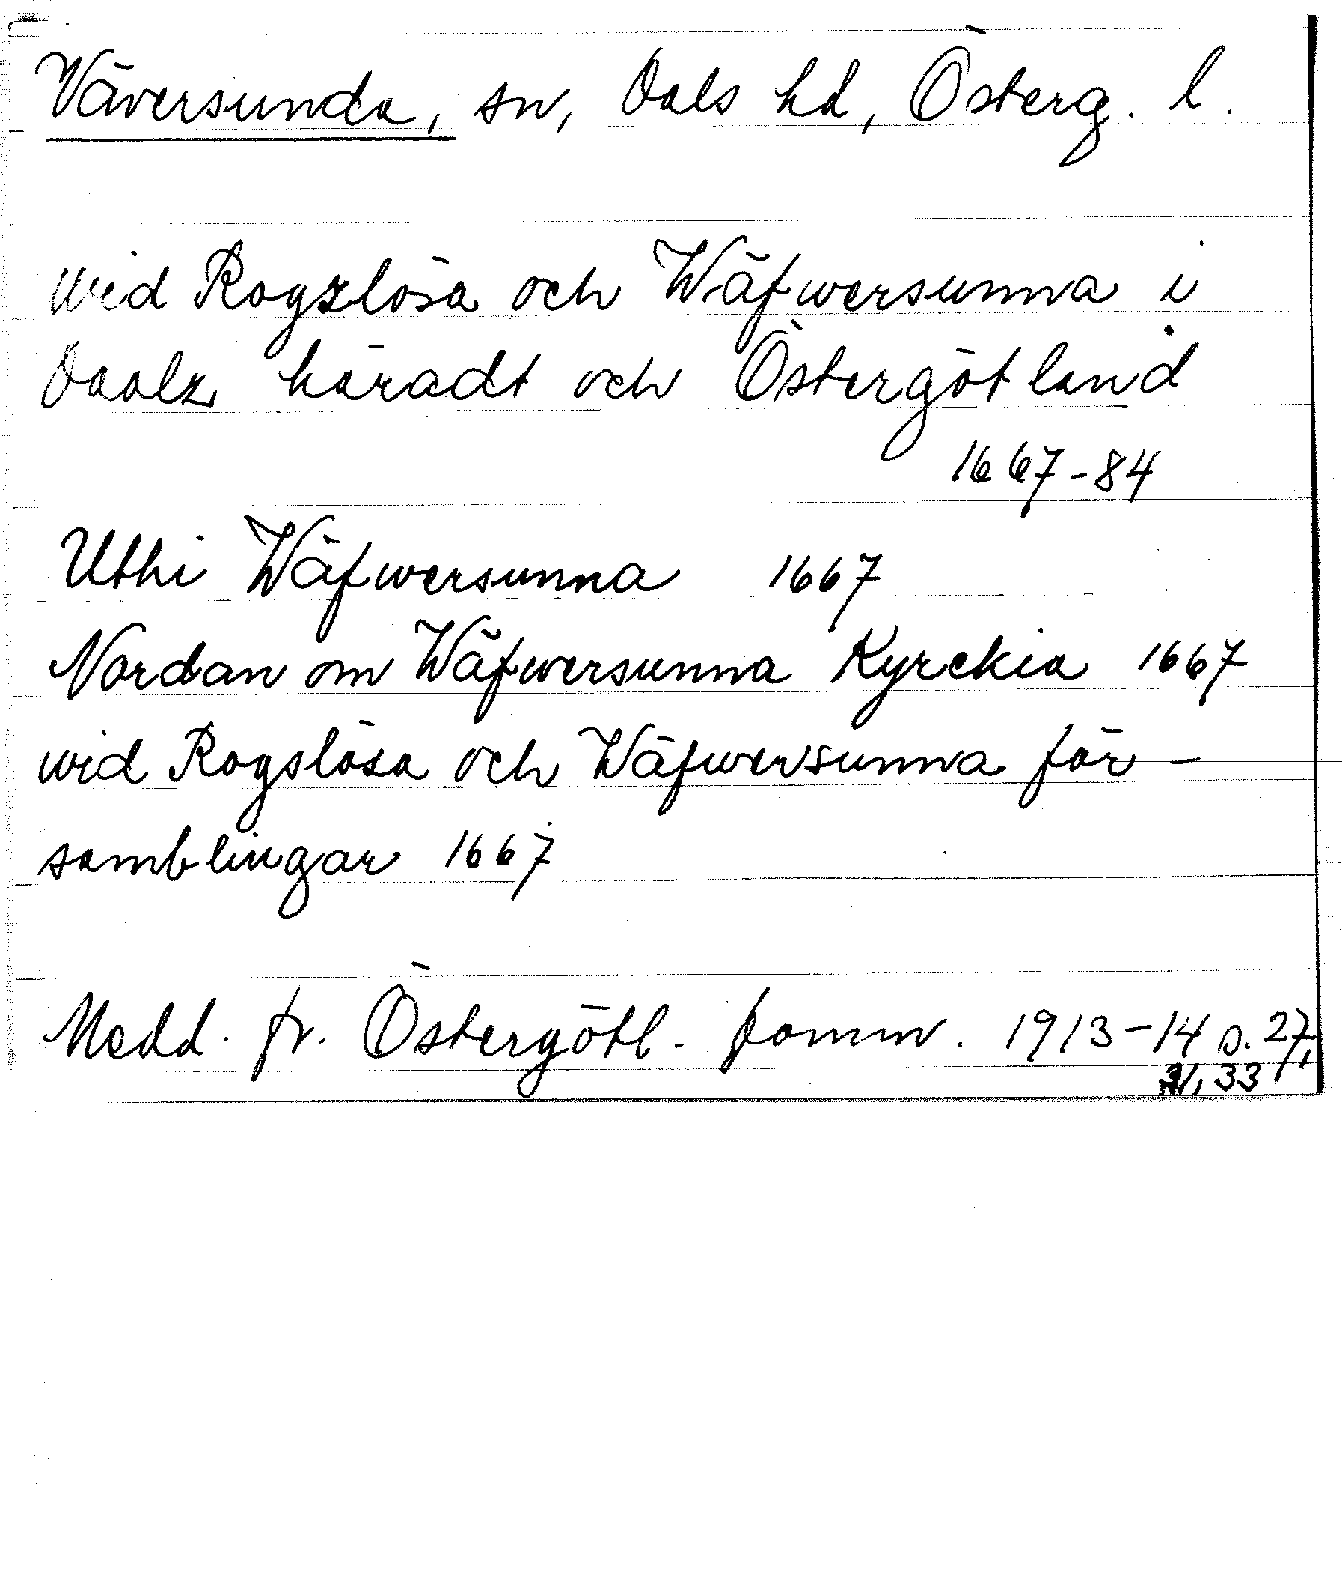 Väversunda, sn, Dals hd, Österg. l.
wid Rogzlösa och Wäfwersunna i
Daalz häradt och Östergötland
1667-84
Uthi Wäfwersunna 1667
Nordan om Wäfwersunna Kyrckia 1667
wid Rogslösa och Wäfwersunna för-
samblingar 1667
Medd. fr. Östergötl. fornm. 1913-14 s. 27,
31, 33